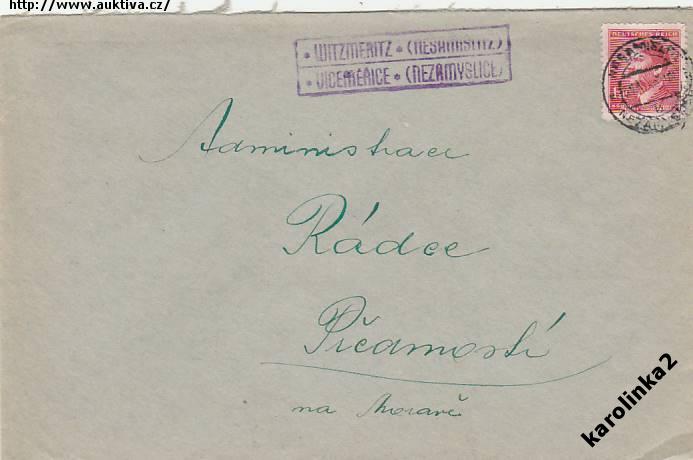 http://www.auktiva.cz/
• WITZMERITZ • (NESAMISLITZ)
• VICEMĚŘICE • (NEZAMYSLICE)
DEUTSCHES REICH
Administrace
Rádce
na Moravě
karolinka2